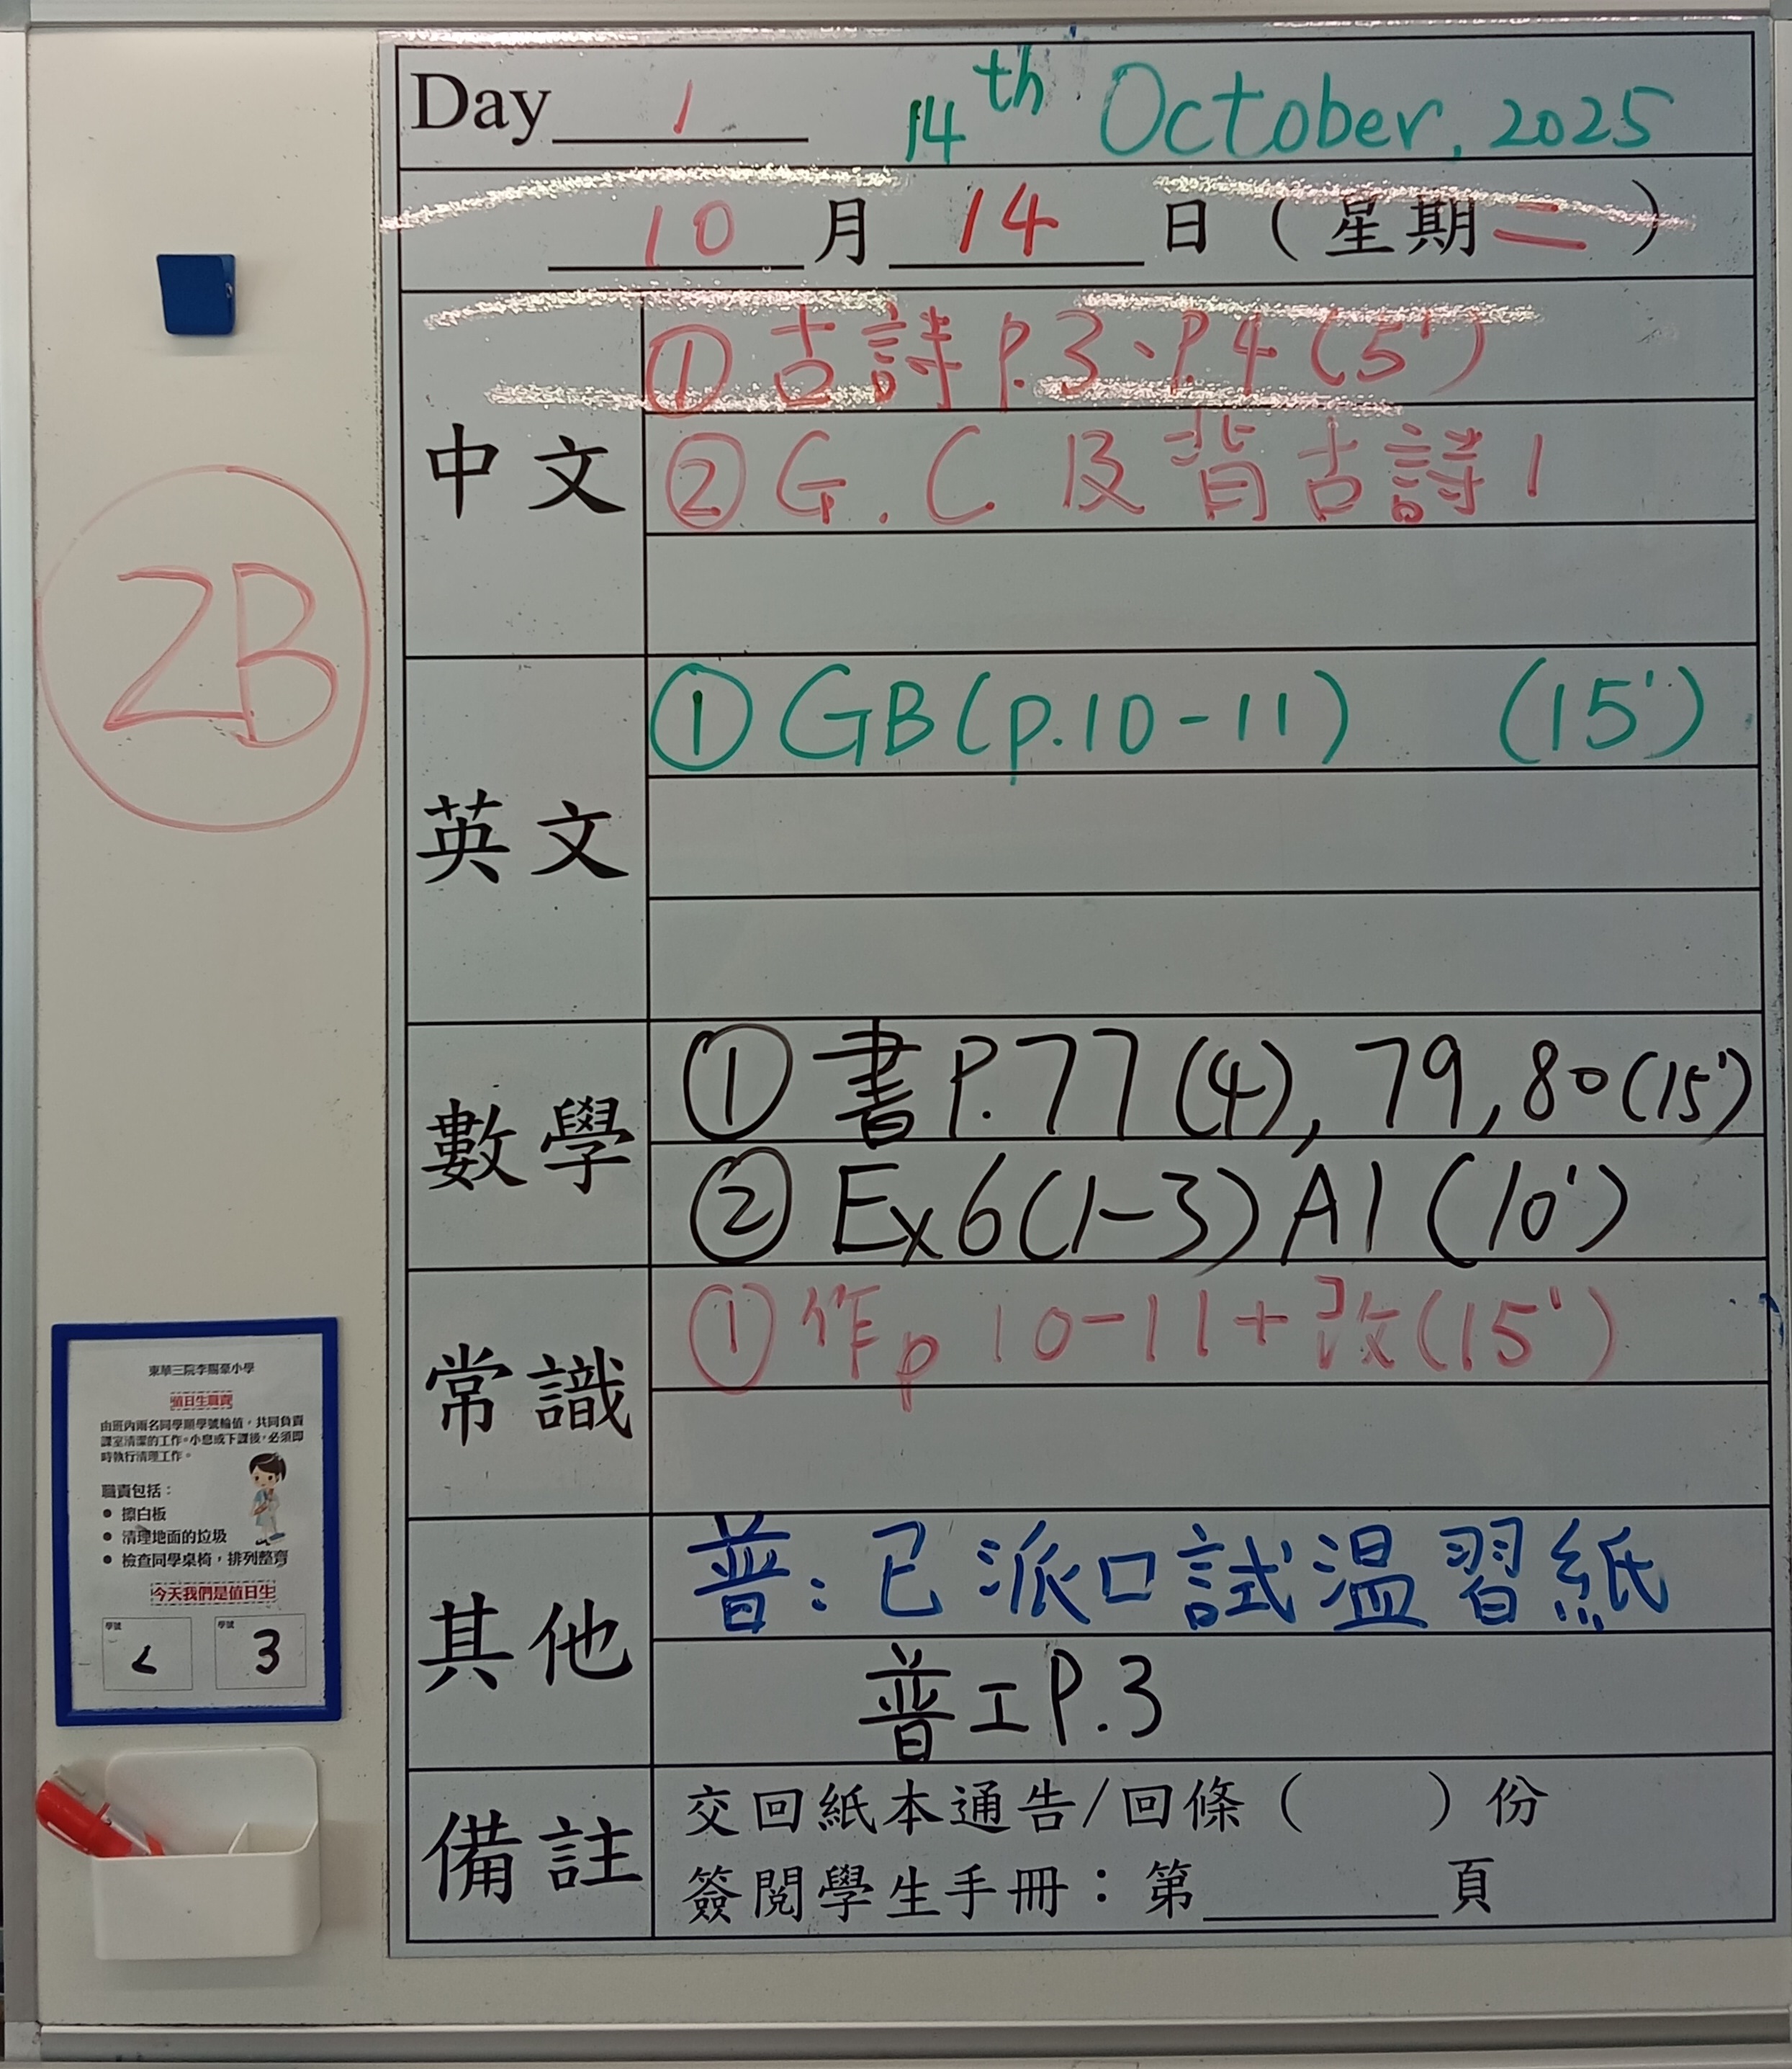 Day 1 14th October, 2025
10 月 14 日 ( 星期 二 )
中文
① 古詩 P.3、P.4 (5')
② G.C 及背古詩1
2B
英文
① GB (p.10-11) (15')
數學
① 書 P.77(4), 79, 80 (15')
② Ex6(1-3) A1 (10')
常識
① 作p 10-11+改(15')
其他
普：已派口試溫習紙
普工P.3
備註
交回紙本通告/回條 ( ) 份
簽閱學生手冊：第 頁
東華三院李賜豪小學
值日生職責
由班內兩名同學順學號輪值，共同負責
課室清潔的工作。小息或下課後，必須即
時執行清理工作。
職責包括：
● 擦白板
● 清理地面的垃圾
● 檢查同學桌椅，排列整齊
今天我們是值日生
學號 學號
3